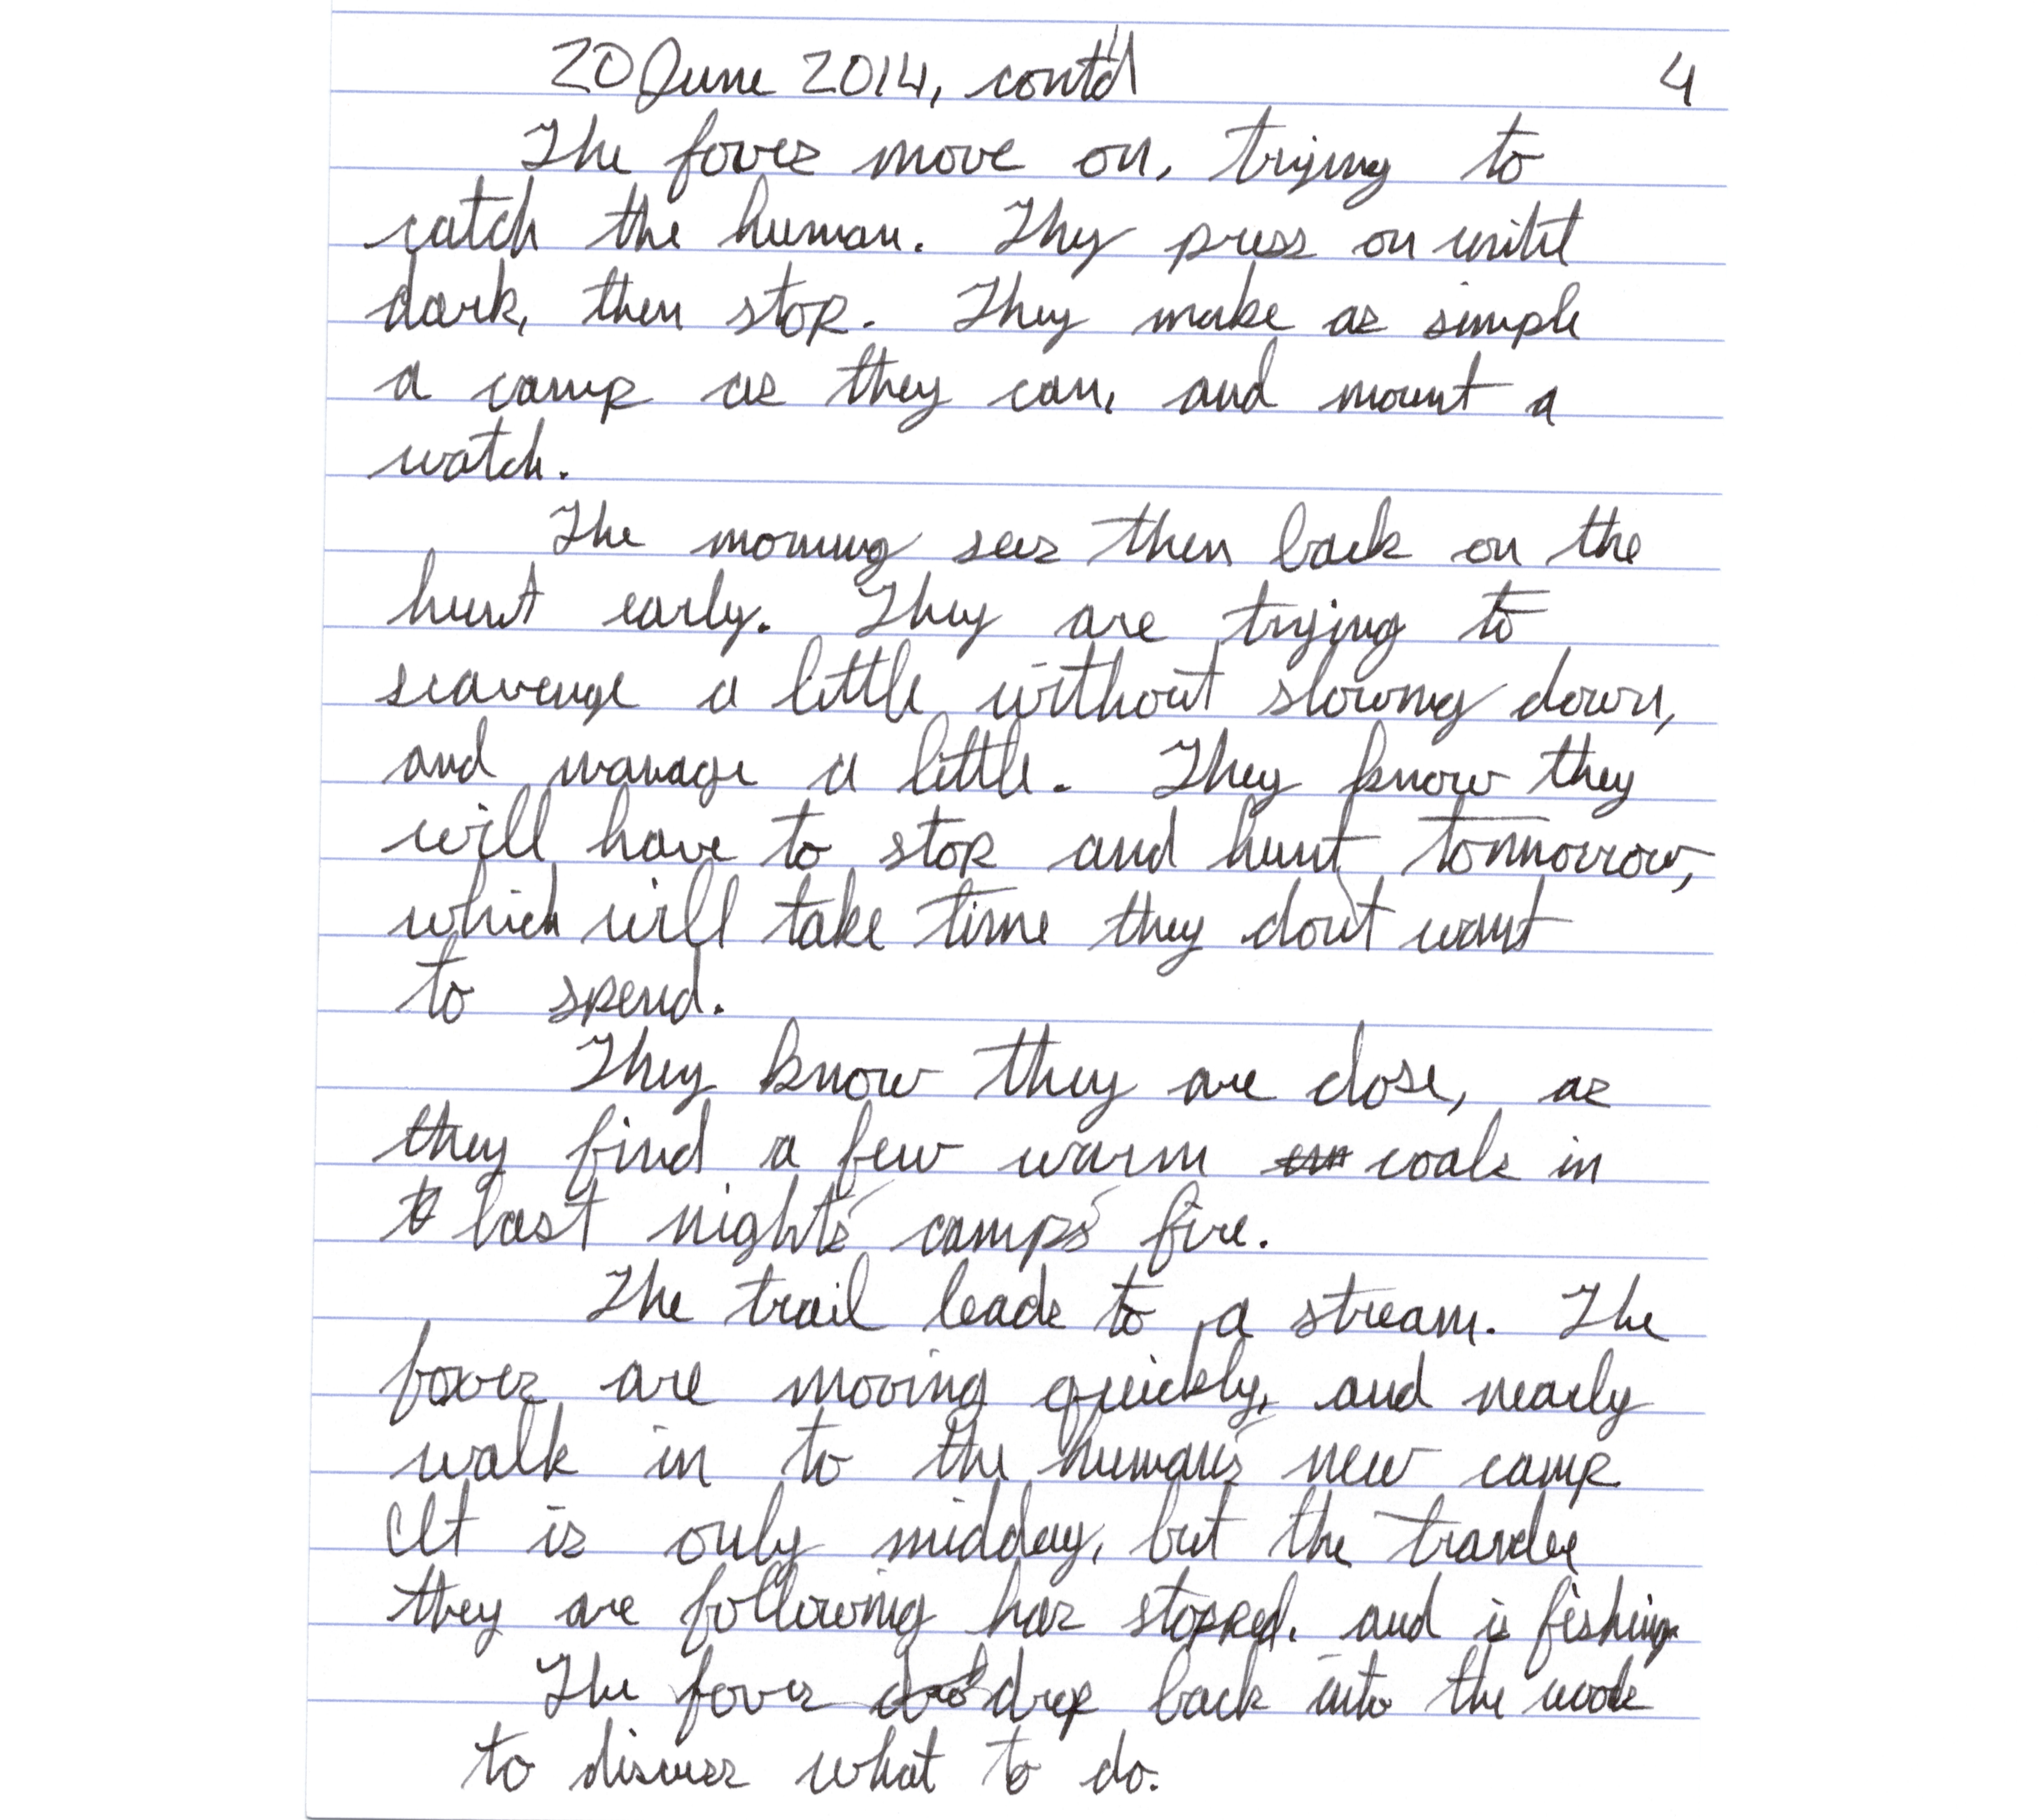 20 June 2014, cont'd 4
The foxes move on, trying to
catch the human. They press on until
dark, then stop. They make as simple
a camp as they can, and mount a
watch.
The morning sees them back on the
hunt early. They are trying to
scavenge a little without slowing down,
and manage a little. They know they
will have to stop and hunt tommorrow,
which will take time they don't want
to spend.
They know they are close, as
they find a few warm coals in
last night's camp's fire.
The trail leads to a stream. The
foxes are moving quickly, and nearly
walk in to the human's new camp.
It is only midday, but the traveler
they are following has stopped, and is fishing.
The foxes drop back into the woods
to discuss what to do.